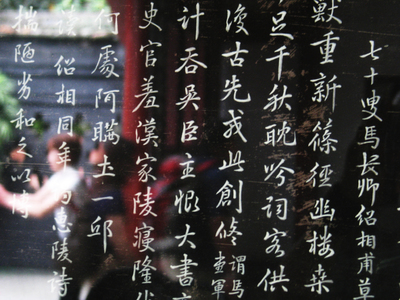 七十叟馬長卿紹相甫草
重新篠徑幽棲
足千秋耽吟詞客供
復古先我此創修謂馬軍
計吞吳臣主恨大書
史官羞漢家陵寢隆
何處阿瞞土一邱
讀紹相同年惠陵詩
揣陋劣和之以詩